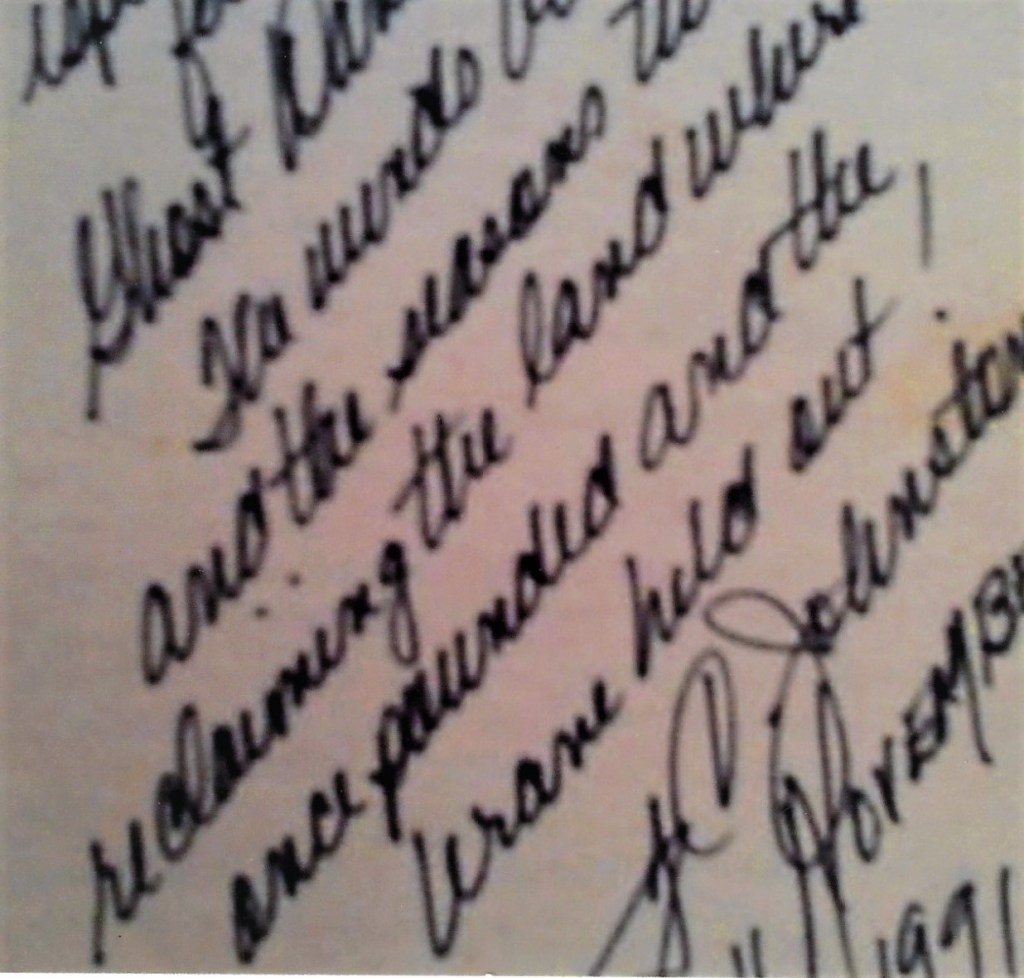 Ghost
No winds
and the seasons
reclaiming the land where
once pounded and the
Urane held out!
JC Johnston
11 NOVEMBE
1991